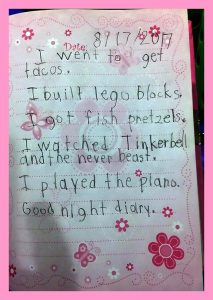 Date: 8/17/2017
I went to get
tacos.
I built lego blocks.
I got fish pretzels.
I watched Tinkerbel
and the never beast.
I played the piano.
Good night diary.